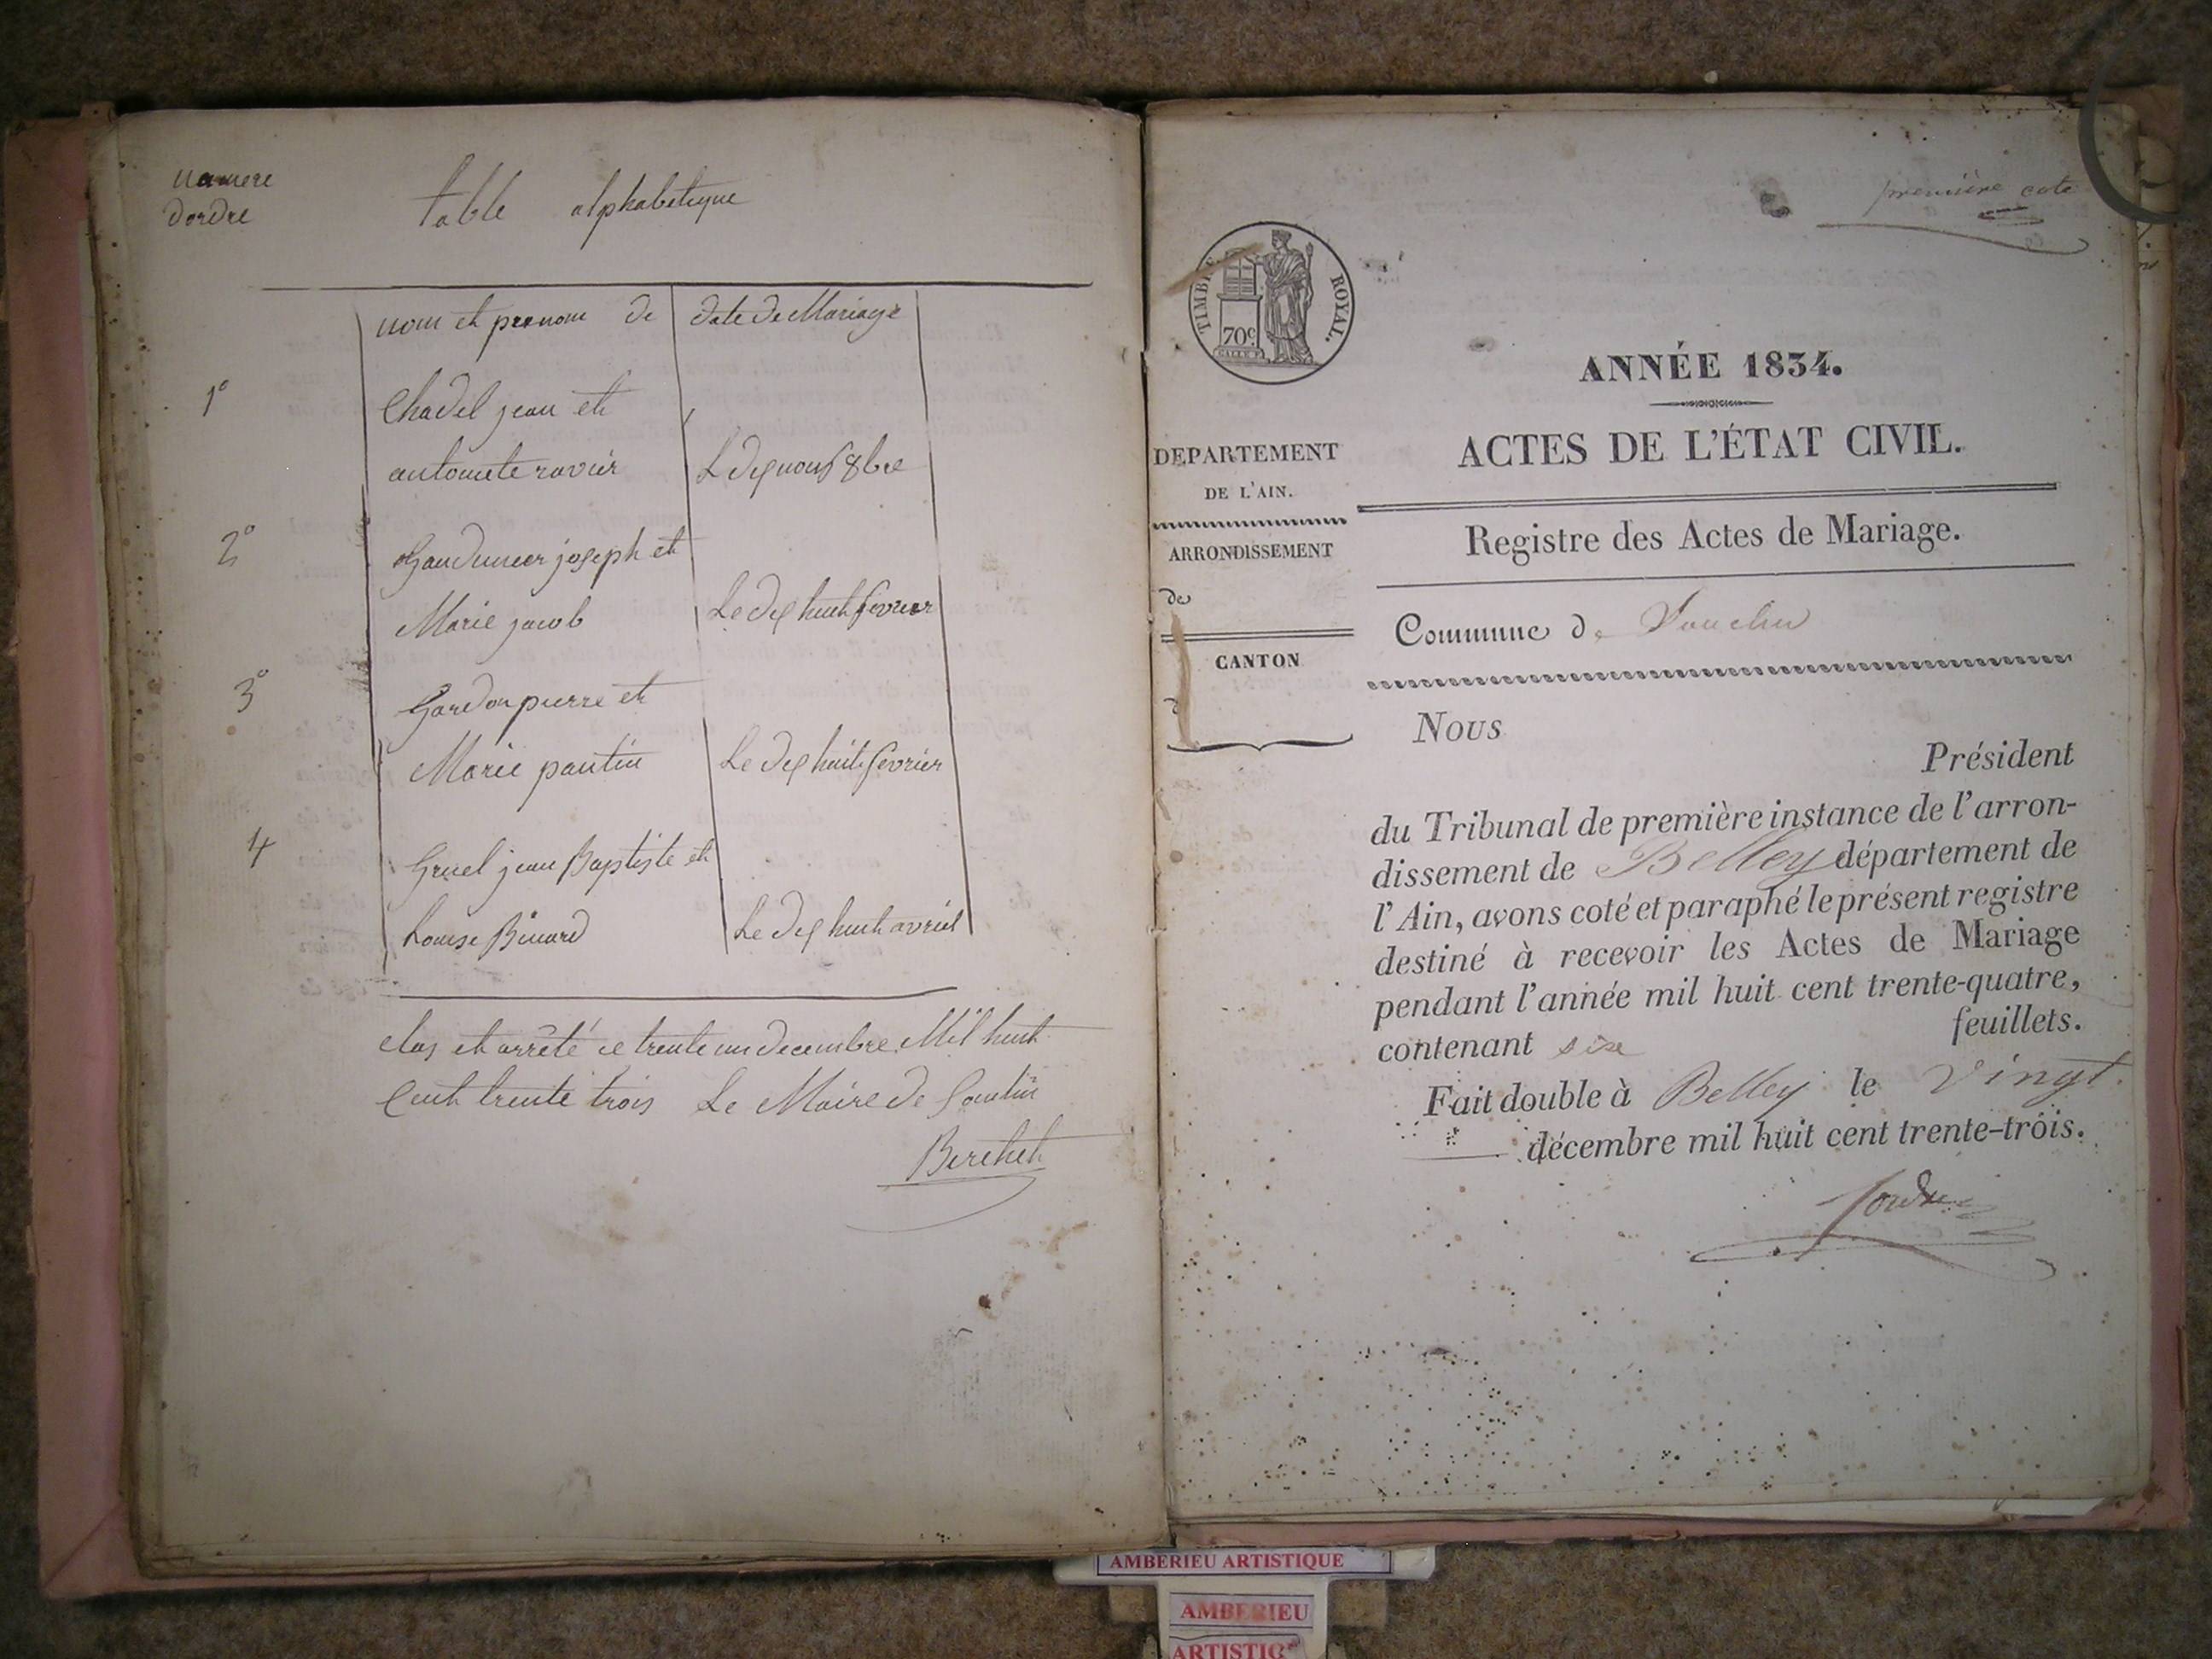 numero
dordre
table alphabetique
nom et prenom de
date de Mariage
1°
Chadel jean et
antoinete ravier
Le dix nouf 8bre
2°
joseph et
Marie jacob
Le dix huit fevrier
3°
Gardon pierre et
Marie pantin
Le dix huit fevrier
4
Gruel jean Baptiste et
Louise Binard
Le dix huit avriel
clos et arrêté ce trente un decembre Mil huit
Cent trente trois Le Maire de
Berthet
première cote
TIMBRE ROYAL.
70c
ANNÉE 1834.
ACTES DE L'ÉTAT CIVIL.
DEPARTEMENT
DE L'AIN.
Registre des Actes de Mariage.
ARRONDISSEMENT
de
Commune de
CANTON
Nous
Président
du Tribunal de première instance de l'arron-
dissement de Belley département de
l'Ain, avons coté et paraphé le présent registre
destiné à recevoir les Actes de Mariage
pendant l'année mil huit cent trente-quatre,
contenant six feuillets.
Fait double à Belley le vingt
décembre mil huit cent trente-trois.
AMBERIEU ARTISTIQUE
AMBERIEU
ARTISTIQ